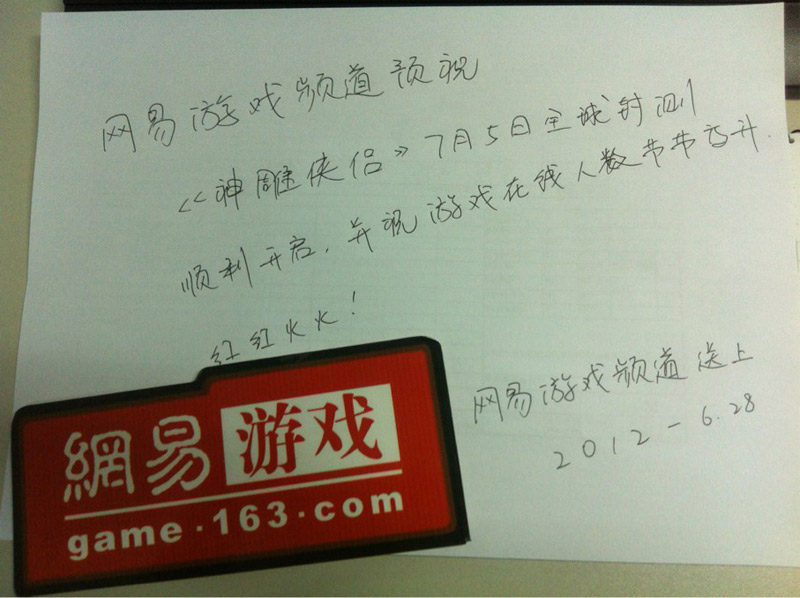 网易游戏频道预祝
《神雕侠侣》7月5日全球封测
顺利开启，并祝游戏在线人数节节高升.
红红火火！
网易游戏频道 送上
2012-6.28
網易游戏
game·163·com